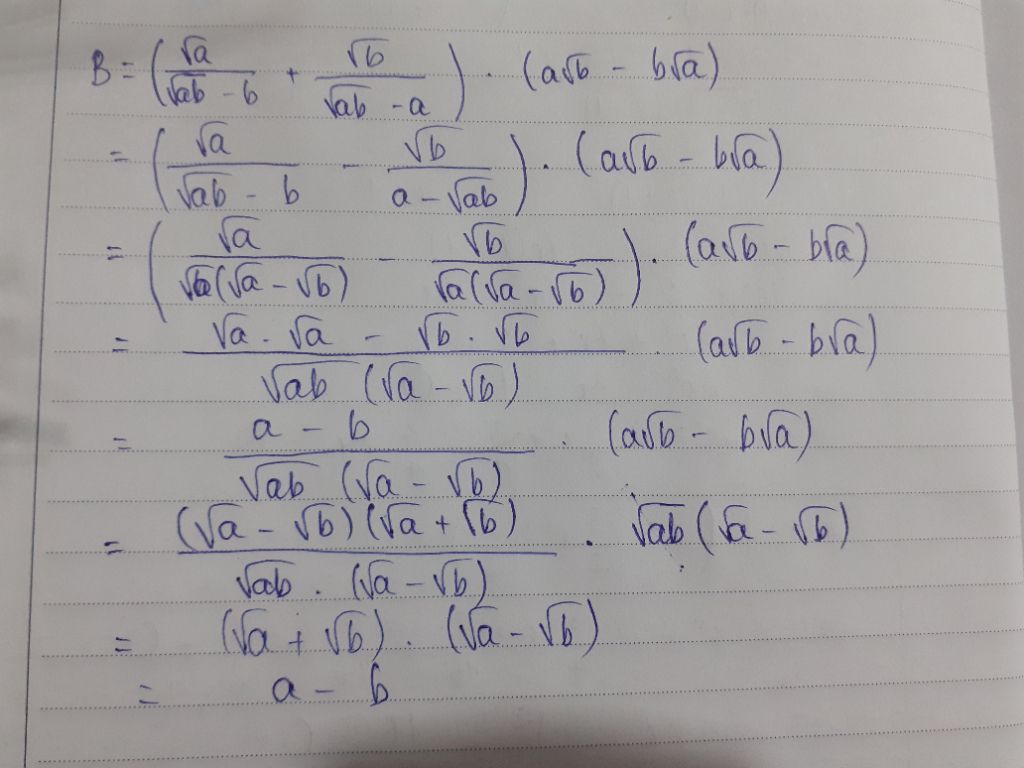 B = (√a/(√ab - b) + √b/(√ab - a)) . (a√b - b√a)
= (√a/(√ab - b) - √b/(a - √ab)) . (a√b - b√a)
= (√a/(√b(√a - √b)) - √b/(√a(√a - √b))) . (a√b - b√a)
= (√a . √a - √b . √b)/(√ab (√a - √b)) . (a√b - b√a)
= (a - b)/(√ab (√a - √b)) . (a√b - b√a)
= (√a - √b)(√a + √b)/(√ab . (√a - √b)) . √ab (√a - √b)
= (√a + √b) . (√a - √b)
= a - b